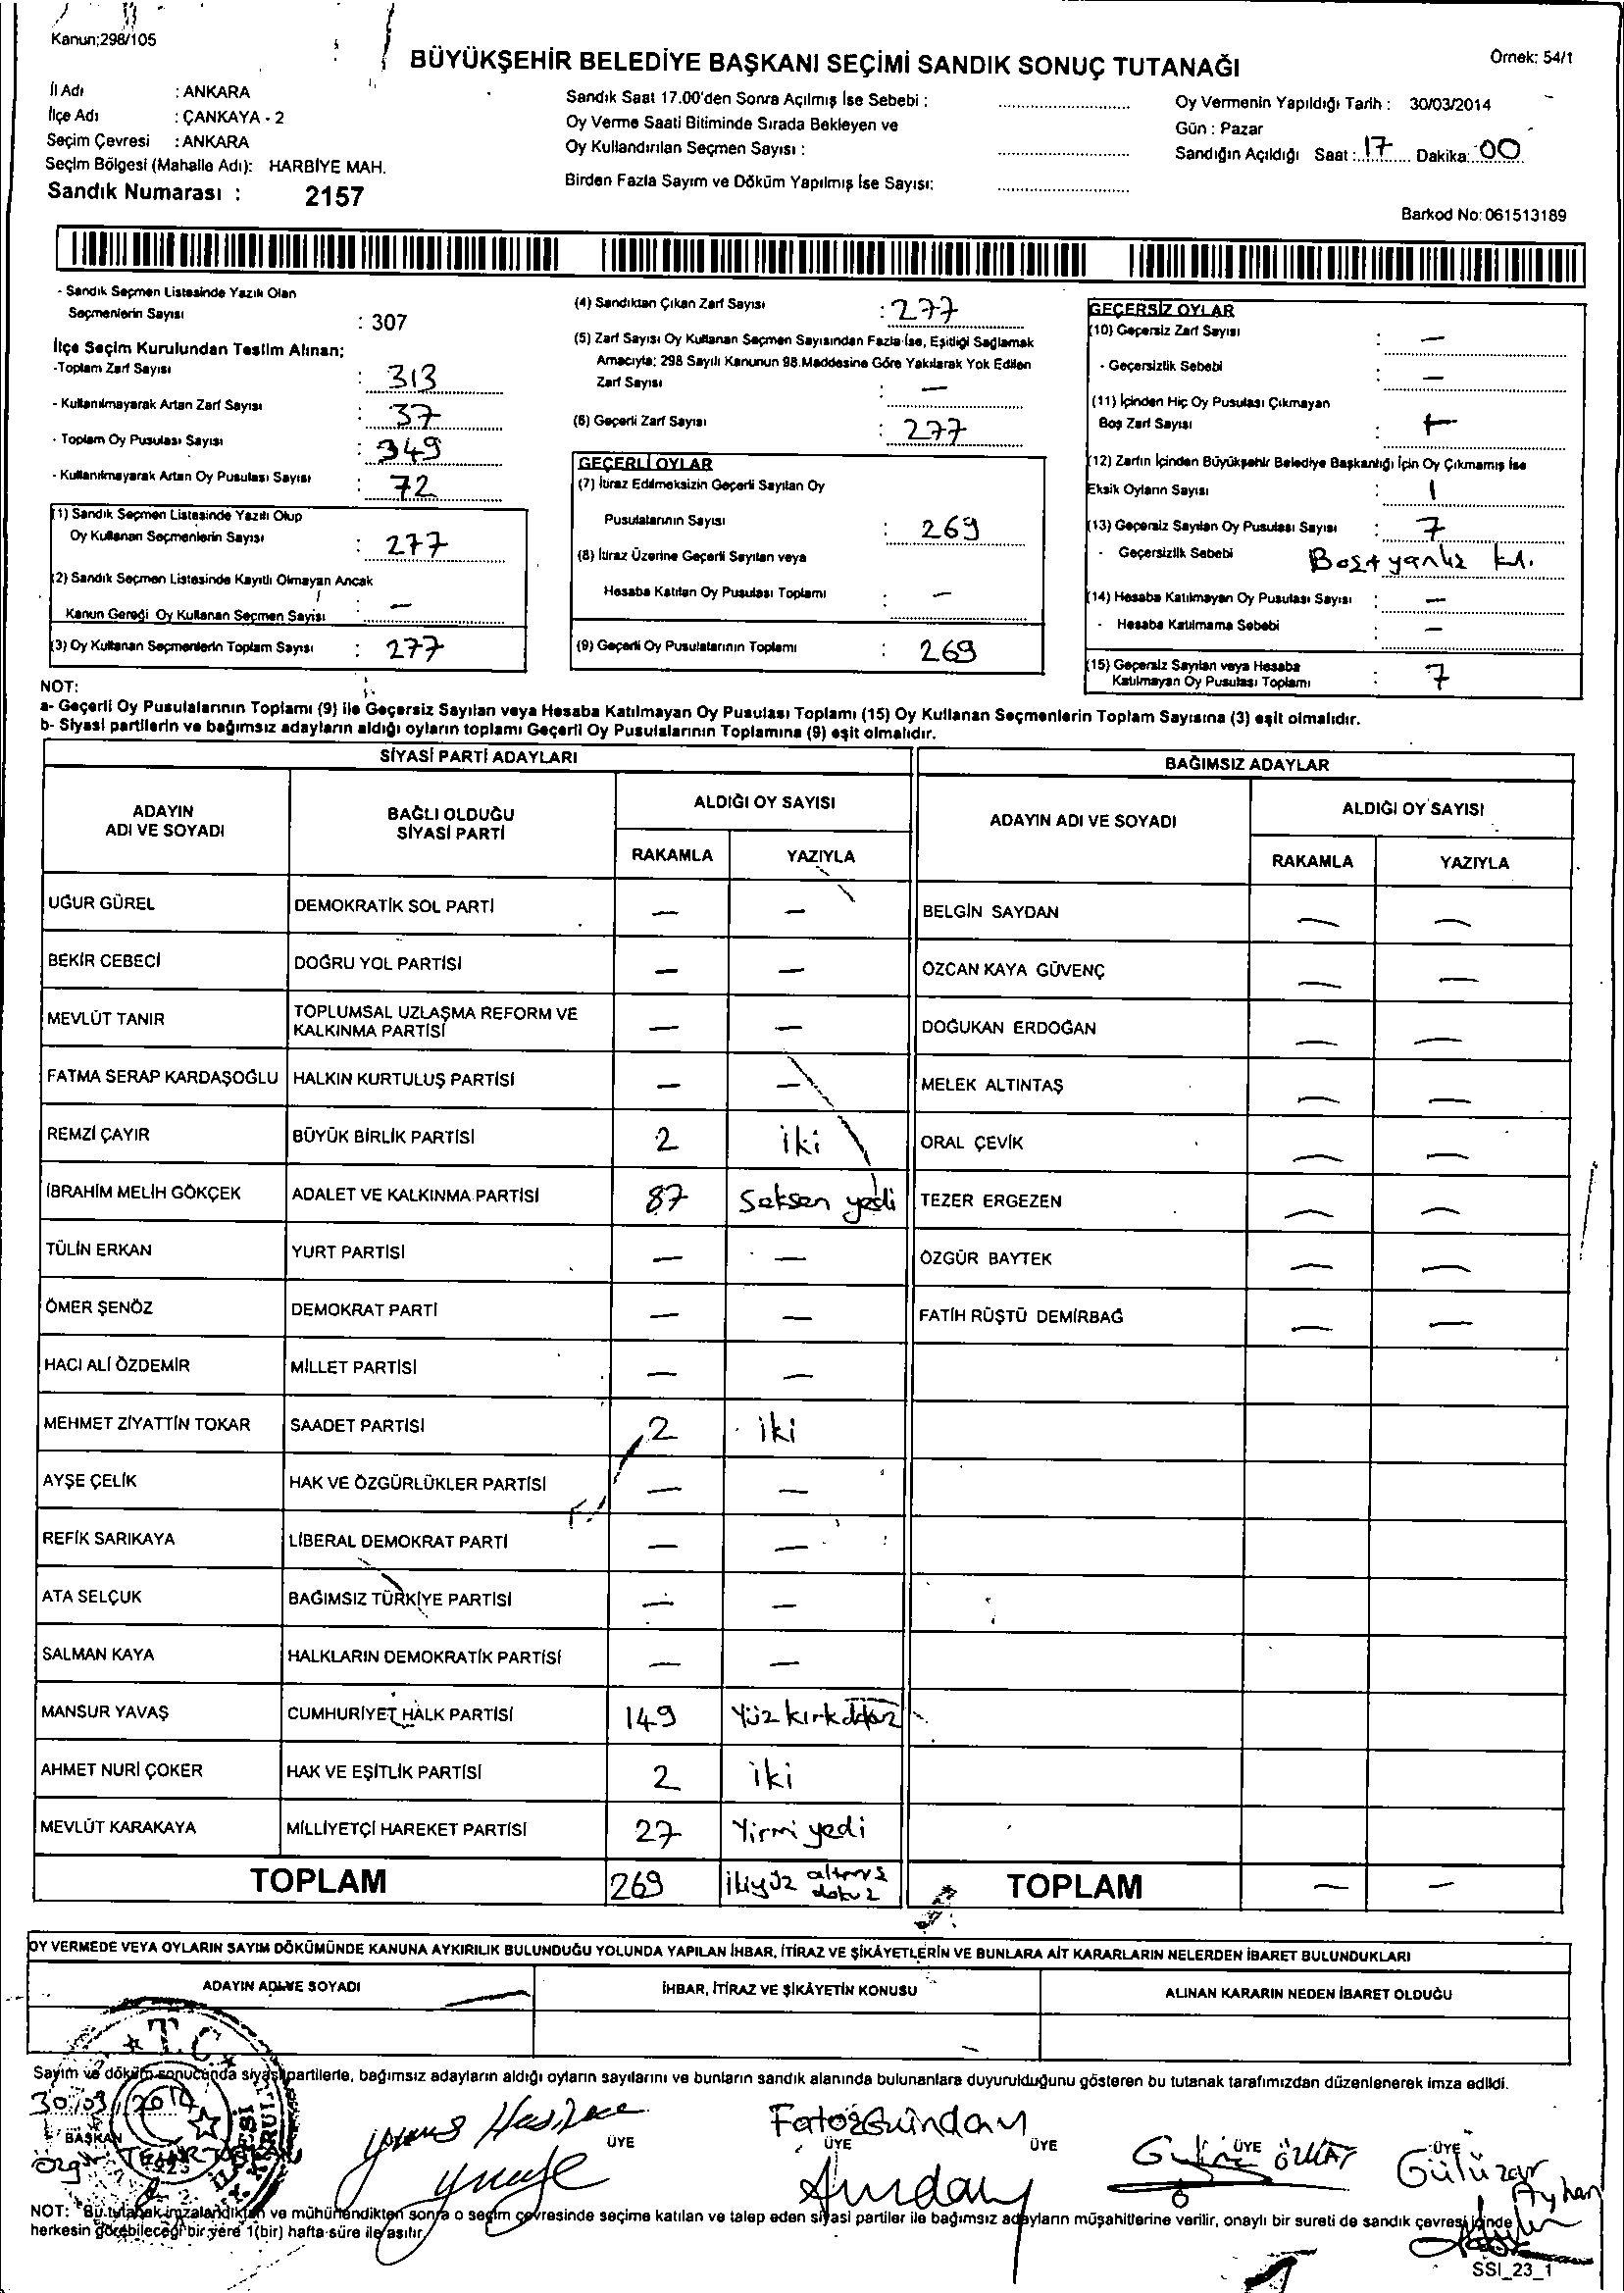 Kanun;298/105
BÜYÜKŞEHİR BELEDİYE BAŞKANI SEÇİMİ SANDIK SONUÇ TUTANAĞI
Örnek: 54/1
İl Adı : ANKARA
İlçe Adı : ÇANKAYA - 2
Seçim Çevresi : ANKARA
Seçim Bölgesi (Mahalle Adı): HARBİYE MAH.
Sandık Numarası : 2157
Sandık Saat 17.00'den Sonra Açılmış İse Sebebi :
Oy Verme Saati Bitiminde Sırada Bekleyen ve
Oy Kullandırılan Seçmen Sayısı :
Birden Fazla Sayım ve Döküm Yapılmış İse Sayısı:
Oy Vermenin Yapıldığı Tarih : 30/03/2014
Gün : Pazar
Sandığın Açıldığı Saat : 17 Dakika: 00
Barkod No: 061513189
- Sandık Seçmen Listesinde Yazılı Olan
Seçmenlerin Sayısı : 307
İlçe Seçim Kurulundan Teslim Alınan;
-Toplam Zarf Sayısı : 313
- Kullanılmayarak Artan Zarf Sayısı : 37
- Toplam Oy Pusulası Sayısı : 349
- Kullanılmayarak Artan Oy Pusulası Sayısı : 72
(1) Sandık Seçmen Listesinde Yazılı Olup
Oy Kullanan Seçmenlerin Sayısı : 277
(2) Sandık Seçmen Listesinde Kayıtlı Olmayan Ancak
Kanun Gereği Oy Kullanan Seçmen Sayısı : —
(3) Oy Kullanan Seçmenlerin Toplam Sayısı : 277
(4) Sandıktan Çıkan Zarf Sayısı : 277
(5) Zarf Sayısı Oy Kullanan Seçmen Sayısından Fazla İse, Eşitliği Sağlamak
Amacıyla; 298 Sayılı Kanunun 98.Maddesine Göre Yakılarak Yok Edilen
Zarf Sayısı : —
(6) Geçerli Zarf Sayısı : 277
GEÇERLİ OYLAR
(7) İtiraz Edilmeksizin Geçerli Sayılan Oy
Pusulalarının Sayısı : 269
(8) İtiraz Üzerine Geçerli Sayılan veya
Hesaba Katılan Oy Pusulası Toplamı : —
(9) Geçerli Oy Pusulalarının Toplamı : 269
GEÇERSİZ OYLAR
(10) Geçersiz Zarf Sayısı : —
- Geçersizlik Sebebi : —
(11) İçinden Hiç Oy Pusulası Çıkmayan
Boş Zarf Sayısı :
(12) Zarfın İçinden Büyükşehir Belediye Başkanlığı İçin Oy Çıkmamış İse
Eksik Oyların Sayısı : 1
(13) Geçersiz Sayılan Oy Pusulası Sayısı : 7
- Geçersizlik Sebebi Boş+yanlız kl.
(14) Hesaba Katılmayan Oy Pusulası Sayısı : —
- Hesaba Katılmama Sebebi : —
(15) Geçersiz Sayılan veya Hesaba
Katılmayan Oy Pusulası Toplamı : 7
NOT:
a- Geçerli Oy Pusulalarının Toplamı (9) ile Geçersiz Sayılan veya Hesaba Katılmayan Oy Pusulası Toplamı (15) Oy Kullanan Seçmenlerin Toplam Sayısına (3) eşit olmalıdır.
b- Siyasi partilerin ve bağımsız adayların aldığı oyların toplamı Geçerli Oy Pusulalarının Toplamına (9) eşit olmalıdır.
SİYASİ PARTİ ADAYLARI
ADAYIN ADI VE SOYADI BAĞLI OLDUĞU SİYASİ PARTİ ALDIĞI OY SAYISI
RAKAMLA YAZIYLA
UĞUR GÜREL DEMOKRATİK SOL PARTİ — —
BEKİR CEBECİ DOĞRU YOL PARTİSİ — —
MEVLÜT TANIR TOPLUMSAL UZLAŞMA REFORM VE KALKINMA PARTİSİ — —
FATMA SERAP KARDAŞOĞLU HALKIN KURTULUŞ PARTİSİ — —
REMZİ ÇAYIR BÜYÜK BİRLİK PARTİSİ 2 iki
İBRAHİM MELİH GÖKÇEK ADALET VE KALKINMA PARTİSİ 87 Seksen yedi
TÜLİN ERKAN YURT PARTİSİ — —
ÖMER ŞENÖZ DEMOKRAT PARTİ — —
HACI ALİ ÖZDEMİR MİLLET PARTİSİ — —
MEHMET ZİYATTİN TOKAR SAADET PARTİSİ 2 iki
AYŞE ÇELİK HAK VE ÖZGÜRLÜKLER PARTİSİ — —
REFİK SARIKAYA LİBERAL DEMOKRAT PARTİ — —
ATA SELÇUK BAĞIMSIZ TÜRKİYE PARTİSİ — —
SALMAN KAYA HALKLARIN DEMOKRATİK PARTİSİ — —
MANSUR YAVAŞ CUMHURİYET HALK PARTİSİ 149 Yüz kırk dokuz
AHMET NURİ ÇOKER HAK VE EŞİTLİK PARTİSİ 2 iki
MEVLÜT KARAKAYA MİLLİYETÇİ HAREKET PARTİSİ 27 Yirmi yedi
TOPLAM 269 ikiyüz altmış dokuz
BAĞIMSIZ ADAYLAR
ADAYIN ADI VE SOYADI ALDIĞI OY SAYISI
RAKAMLA YAZIYLA
BELGİN SAYDAN — —
ÖZCAN KAYA GÜVENÇ — —
DOĞUKAN ERDOĞAN — —
MELEK ALTINTAŞ — —
ORAL ÇEVİK — —
TEZER ERGEZEN — —
ÖZGÜR BAYTEK — —
FATİH RÜŞTÜ DEMİRBAĞ — —
TOPLAM — —
OY VERMEDE VEYA OYLARIN SAYIM DÖKÜMÜNDE KANUNA AYKIRILIK BULUNDUĞU YOLUNDA YAPILAN İHBAR, İTİRAZ VE ŞİKÂYETLERİN VE BUNLARA AİT KARARLARIN NELERDEN İBARET BULUNDUKLARI
ADAYIN ADI VE SOYADI İHBAR, İTİRAZ VE ŞİKÂYETİN KONUSU ALINAN KARARIN NEDEN İBARET OLDUĞU
T.C.
Sayım ve döküm sonucunda siyasi partilerle, bağımsız adayların aldığı oyların sayılarını ve bunların sandık alanında bulunanlara duyurulduğunu gösteren bu tutanak tarafımızdan düzenlenerek imza edildi.
30/03/2014
BAŞKAN ÜYE ÜYE ÜYE ÜYE ÜYE
Fatoş Günday
Gülüzar Ayhan
NOT: Bu tutanak imzalandıktan ve mühürlendikten sonra o seçim çevresinde seçime katılan ve talep eden siyasi partiler ile bağımsız adayların müşahitlerine verilir, onaylı bir sureti de sandık çevresi içinde
herkesin görebileceği bir yere 1(bir) hafta süre ile asılır.
SSI_23_1